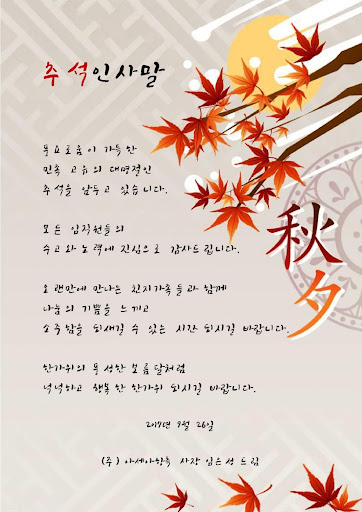 추석인사말
풍요로움이 가득한
민족 고유의 대명절인
추석을 앞두고 있습니다.
모든 임직원들의
수고와 노력에 진심으로 감사드립니다.
오랜만에 만나는 친지가족들과 함께
나눔의 기쁨을 느끼고
소중함을 되새길 수 있는 시간 되시길 바랍니다.
한가위의 풍성한 보름달처럼
넉넉하고 행복한 한가위 되시길 바랍니다.
9월 26일
(주) 아세아항측 사장 임은성 드림
秋夕